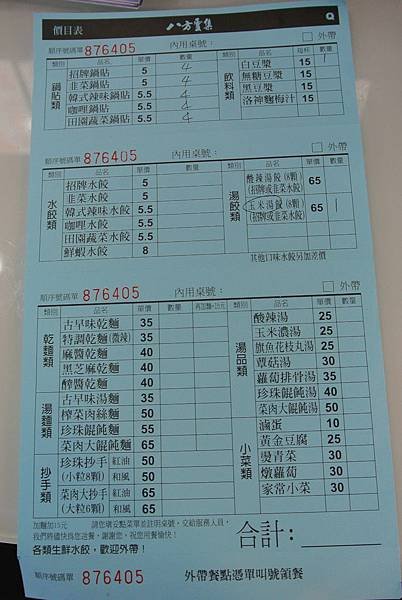 價目表 八方雲集 Q
順序號碼單 876405 內用桌號： □ 外帶
類別 品名 單價 數量 類別 品名 每杯 數量
鍋貼類 飲料類
招牌鍋貼 5 4 白豆漿 15 1
韭菜鍋貼 5 無糖豆漿 15
韓式辣味鍋貼 5.5 4 黑豆漿 15
咖哩鍋貼 5.5 4 洛神麴梅汁 15
田園蔬菜鍋貼 5.5 4
順序號碼單 876405 內用桌號： □ 外帶
類別 品名 單價 數量 類別 品名 單價 數量
水餃類 湯餃類
招牌水餃 5 酸辣湯餃(8顆) 65
韭菜水餃 5 (招牌或韭菜水餃)
韓式辣味水餃 5.5 玉米湯餃(8顆) 65 1
咖哩水餃 5.5 (招牌或韭菜水餃)
田園蔬菜水餃 5.5
鮮蝦水餃 8 其他口味水餃另加差價
順序號碼單 876405 內用桌號： □ 外帶
類別 品名 單價 數量 類別 品名 單價 數量
乾麵類 湯品類
古早味乾麵 35 酸辣湯 25
特調乾麵(微辣) 35 玉米濃湯 25
麻醬乾麵 40 旗魚花枝丸湯 25
黑芝麻乾麵 40 蕈菇湯 30
醡醬乾麵 40 蘿蔔排骨湯 35
湯麵類
古早味湯麵 35 珍珠餛飩湯 40
榨菜肉絲麵 50 菜肉大餛飩湯 50
小菜類
珍珠餛飩麵 55 滷蛋 10
菜肉大餛飩麵 65 黃金豆腐 25
抄手類
珍珠抄手 紅油 50 燙青菜 30
(小粒8顆) 和風 50 燉蘿蔔 30
菜肉大抄手 紅油 65 家常小菜 30
(大粒6顆) 和風 65
加麵加15元 請您填妥點菜單並註明桌號，交給服務人員，
我們將儘快為您送餐，謝謝您，祝您用餐愉快！
各類生鮮水餃，歡迎外帶！ 合計：
順序號碼單 876405 外帶餐點憑單叫號領餐